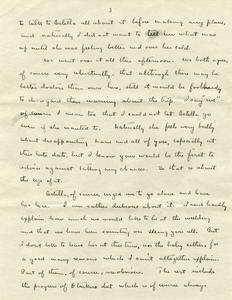 3
to talk to Estella all about it before making any plans,
and naturally I did not want to tell her what was
up until she was feeling better and over her cold.
We went over it all this afternoon. We both agree,
of course very reluctantly, that although there may be
better doctors than ours here, still it would be foolhardy
to disregard their warning about the trip. I say "we"
of course I mean too that I could not let Estella go
even if she wanted to. Naturally she feels very badly
about disappointing Mama and all of you, especially at
this late date, but I know you would be the first to
advise against taking any chances. So that is about
the size of it.
Estella, of course, urged me to go alone and leave
her here. I am rather dubious about it. I need hardly
explain how much we would like to be at the wedding
and that we have been counting on seeing you all. But
I don't like to leave her at this time, nor the baby either, for
a good many reasons which I can't altogether explain.
Part of them, of course, are obvious. The rest include
the progress of strikers that which is of course always